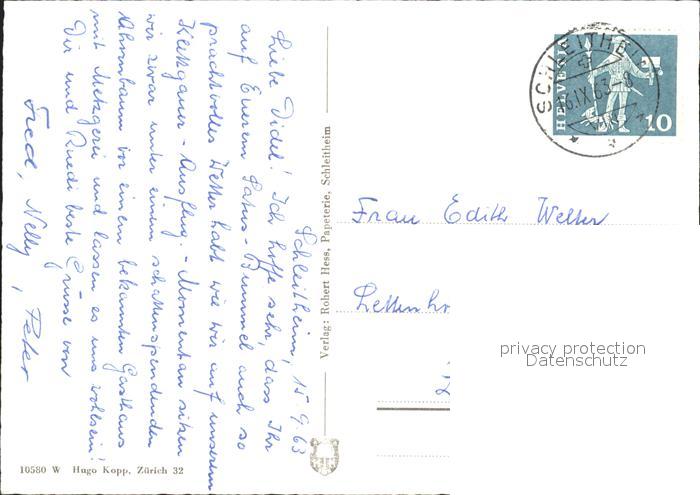 Schleitheim, 15.9.63
Liebe Didel! Ich hoffe sehr, dass Ihr
auf Euerem Satus-Bummel auch so
prachtvolles Wetter habt wie wir auf unserem
Klettgauer-Ausflug. - Momentan sitzen
wir zwar unter einem schattenspendenden
Ahornbaum vor einem bekannten Gasthaus
mit Metzgerei und lassen es uns wohlsein!
Dir und Ruedi beste Grüsse von
Fred, Nelly, Peter
10580 W Hugo Kopp, Zürich 32
Verlag: Robert Hess, Papeterie, Schleitheim
HELVETIA
10
SCHLEITHEIM
16.IX.63-9
Frau Edith Welter
privacy protection
Datenschutz